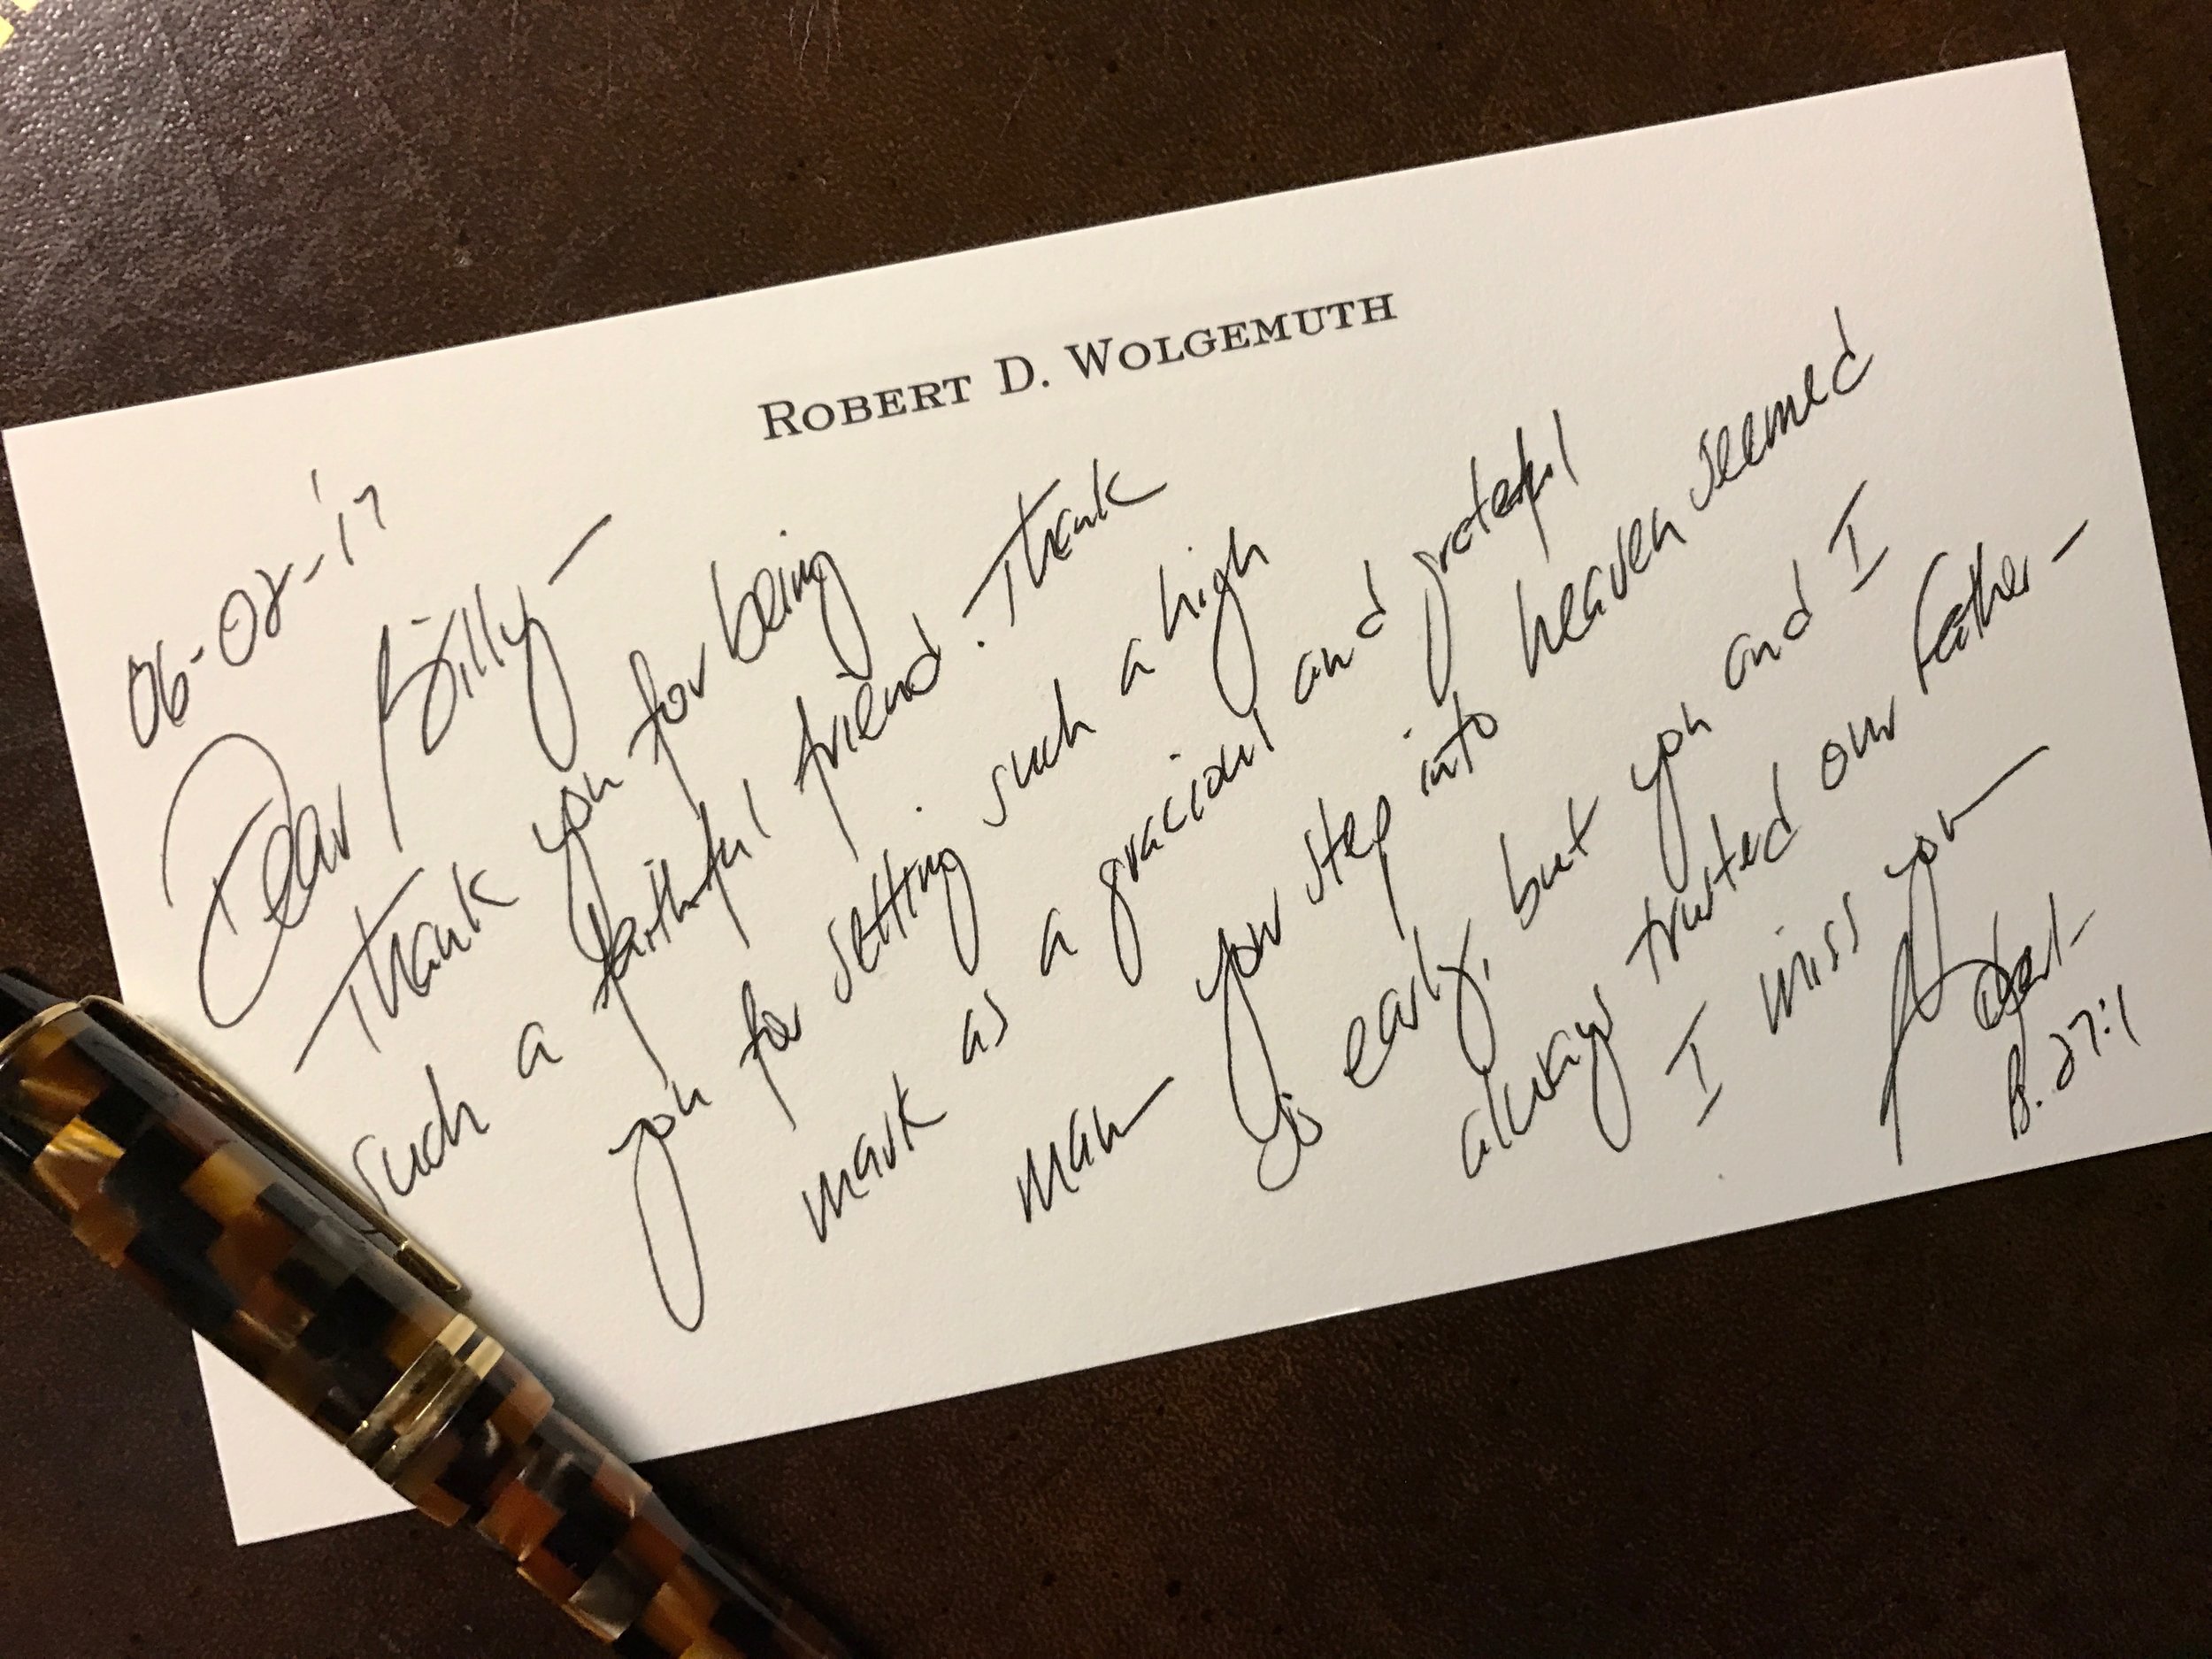 ROBERT D. WOLGEMUTH
06-02-'17
Dear Billy —
Thank you for being
such a faithful friend. Thank
you for setting such a high
mark as a gracious and grateful
man — your step into heaven seemed
so early, but you and I
always trusted our Father —
I miss you —
Robert
27:1